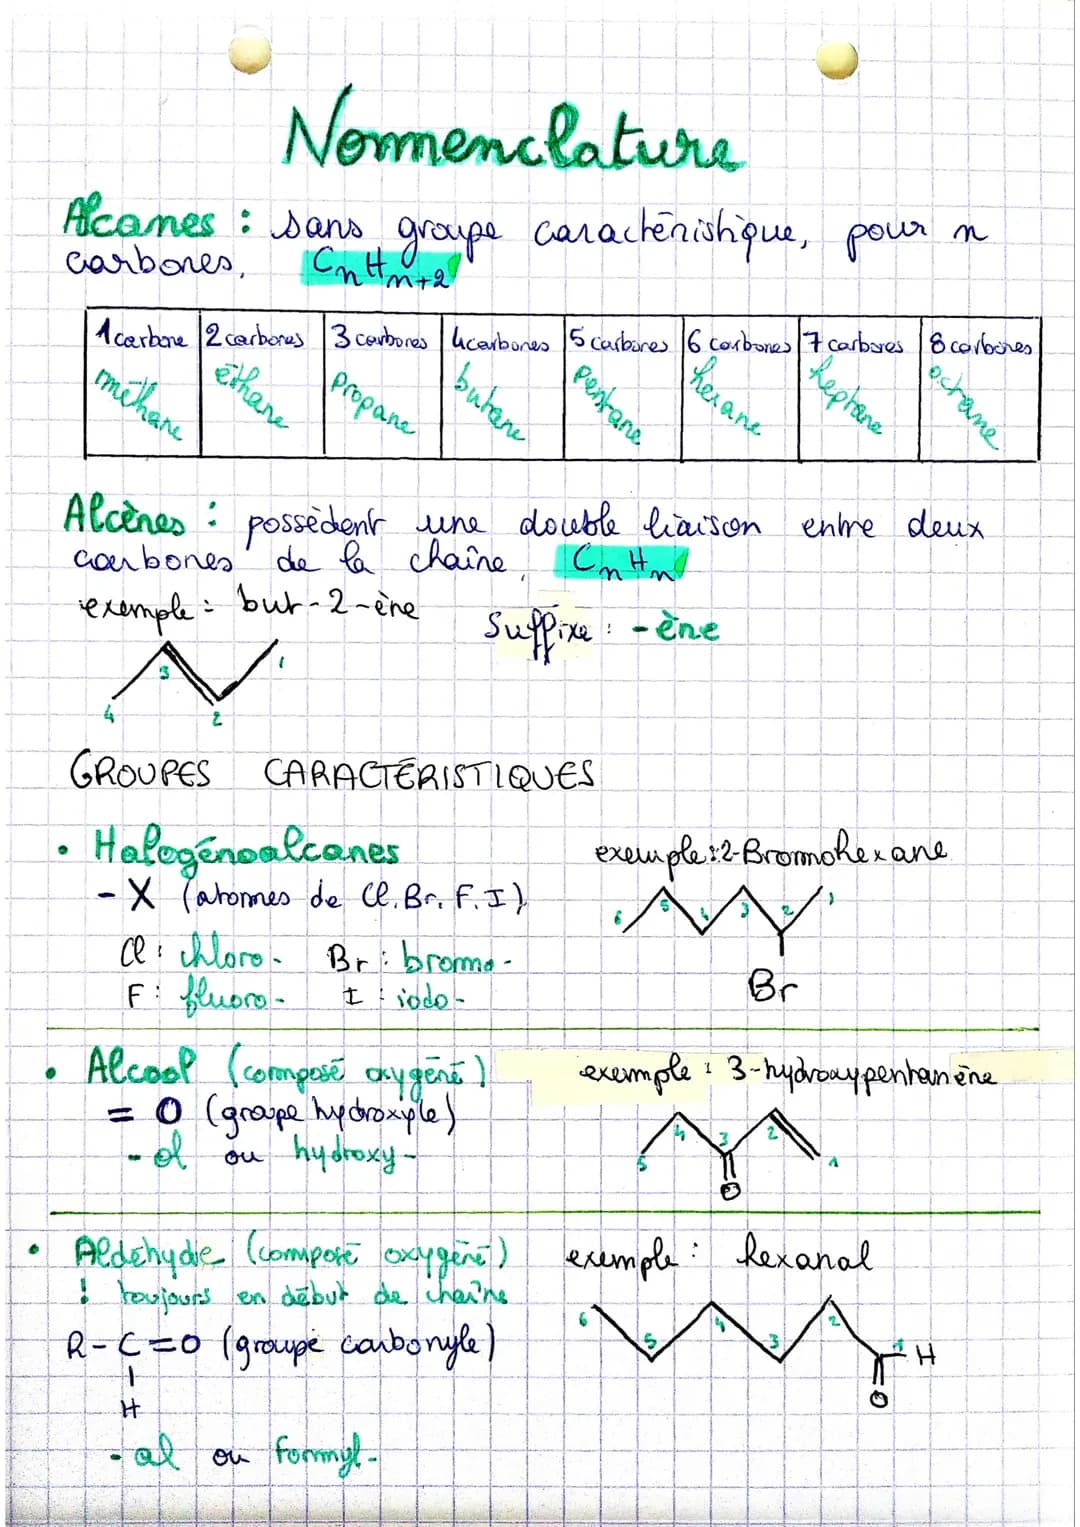 Nommenclature
Alcanes : sans groupe caractéristique, pour n
carbones, CnHn+2
1 carbone 2 carbones 3 carbones 4 carbones 5 carbones 6 carbones 7 carbones 8 carbones
méthane éthane propane butane pentane hexane heptane octane
Alcènes : possèdent une double liaison entre deux
carbones de la chaîne, CnHn
exemple : but-2-ène
Suffixe : -ène
1
3
4 2
GROUPES CARACTÉRISTIQUES
• Halogénoalcanes
exemple : 2-Bromohexane
- X (atomes de Cl, Br, F, I)
6 5 4 3 2 1
Cl : chloro- Br : bromo-
F : fluoro- I : iodo-
Br
• Alcool (composé oxygéné)
exemple : 3-hydroxypentanène
= O (groupe hydroxyle)
5 4 3 2 1
- ol ou hydroxy-
O
• Aldéhyde (composé oxygéné)
exemple : hexanal
! toujours en début de chaîne
6 5 4 3 2 1
R-C=O (groupe carbonyle)
H
H
O
- al ou formyl-